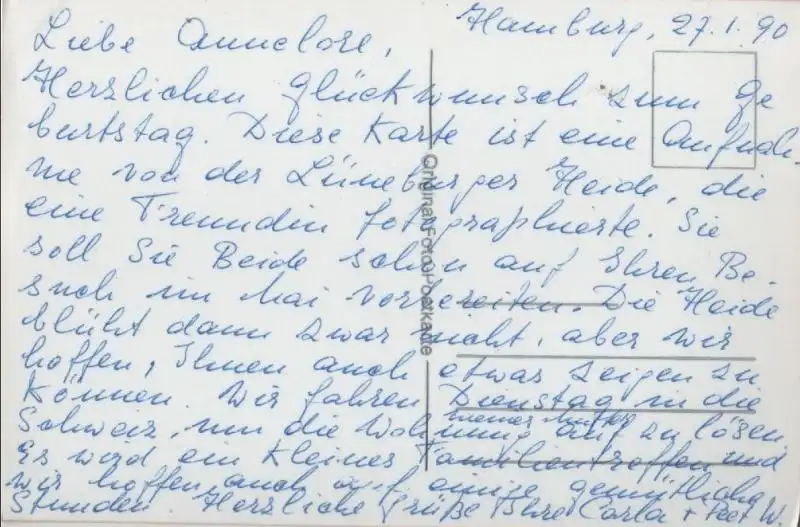 Hamburg, 27.1.90
Liebe Annelore,
Herzlichen Glückwunsch zum Ge
burtstag. Diese Karte ist eine Aufnah-
me von der Lüneburger Heide, die
eine Freundin fotographierte. Sie
soll Sie Beide schon auf Ihren Be-
such im Mai vorbereiten. Die Heide
blüht dann zwar nicht, aber wir
hoffen, Ihnen auch etwas zeigen zu
können. Wir fahren Dienstag in die
Schweiz, um die Wohnung meiner Mutter auf zu lösen
Es wird ein kleines Familientreffen und
wir hoffen auch auf einige gemütliche
Stunden Herzliche Grüße Ihre Carla + Peet W.
Original-Foto-Postkarte